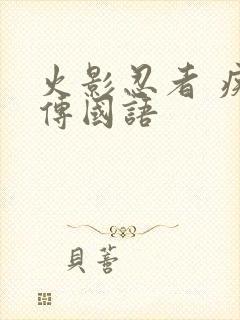 火影忍者 疾
傳國語
貝蒼